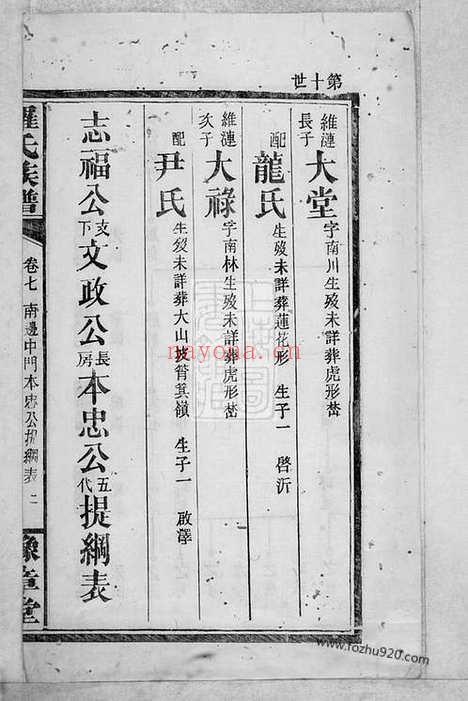 第十世
維漣長子 大堂 字南川生歿未詳葬虎形嵆
配 龍氏 生歿未詳葬蓮花形 生子一 啓沂
維漣次子 大祿 字南林生歿未詳葬虎形嵆
配 尹氏 生歿未詳葬大山坡筲箕嶺 生子一 啟澤
志福公支下文政公長房本忠公五代提綱表
羅氏族譜 卷七 南邊中門本忠公提綱表 二 豫章堂
nayona.cn
www.fozhu920.com